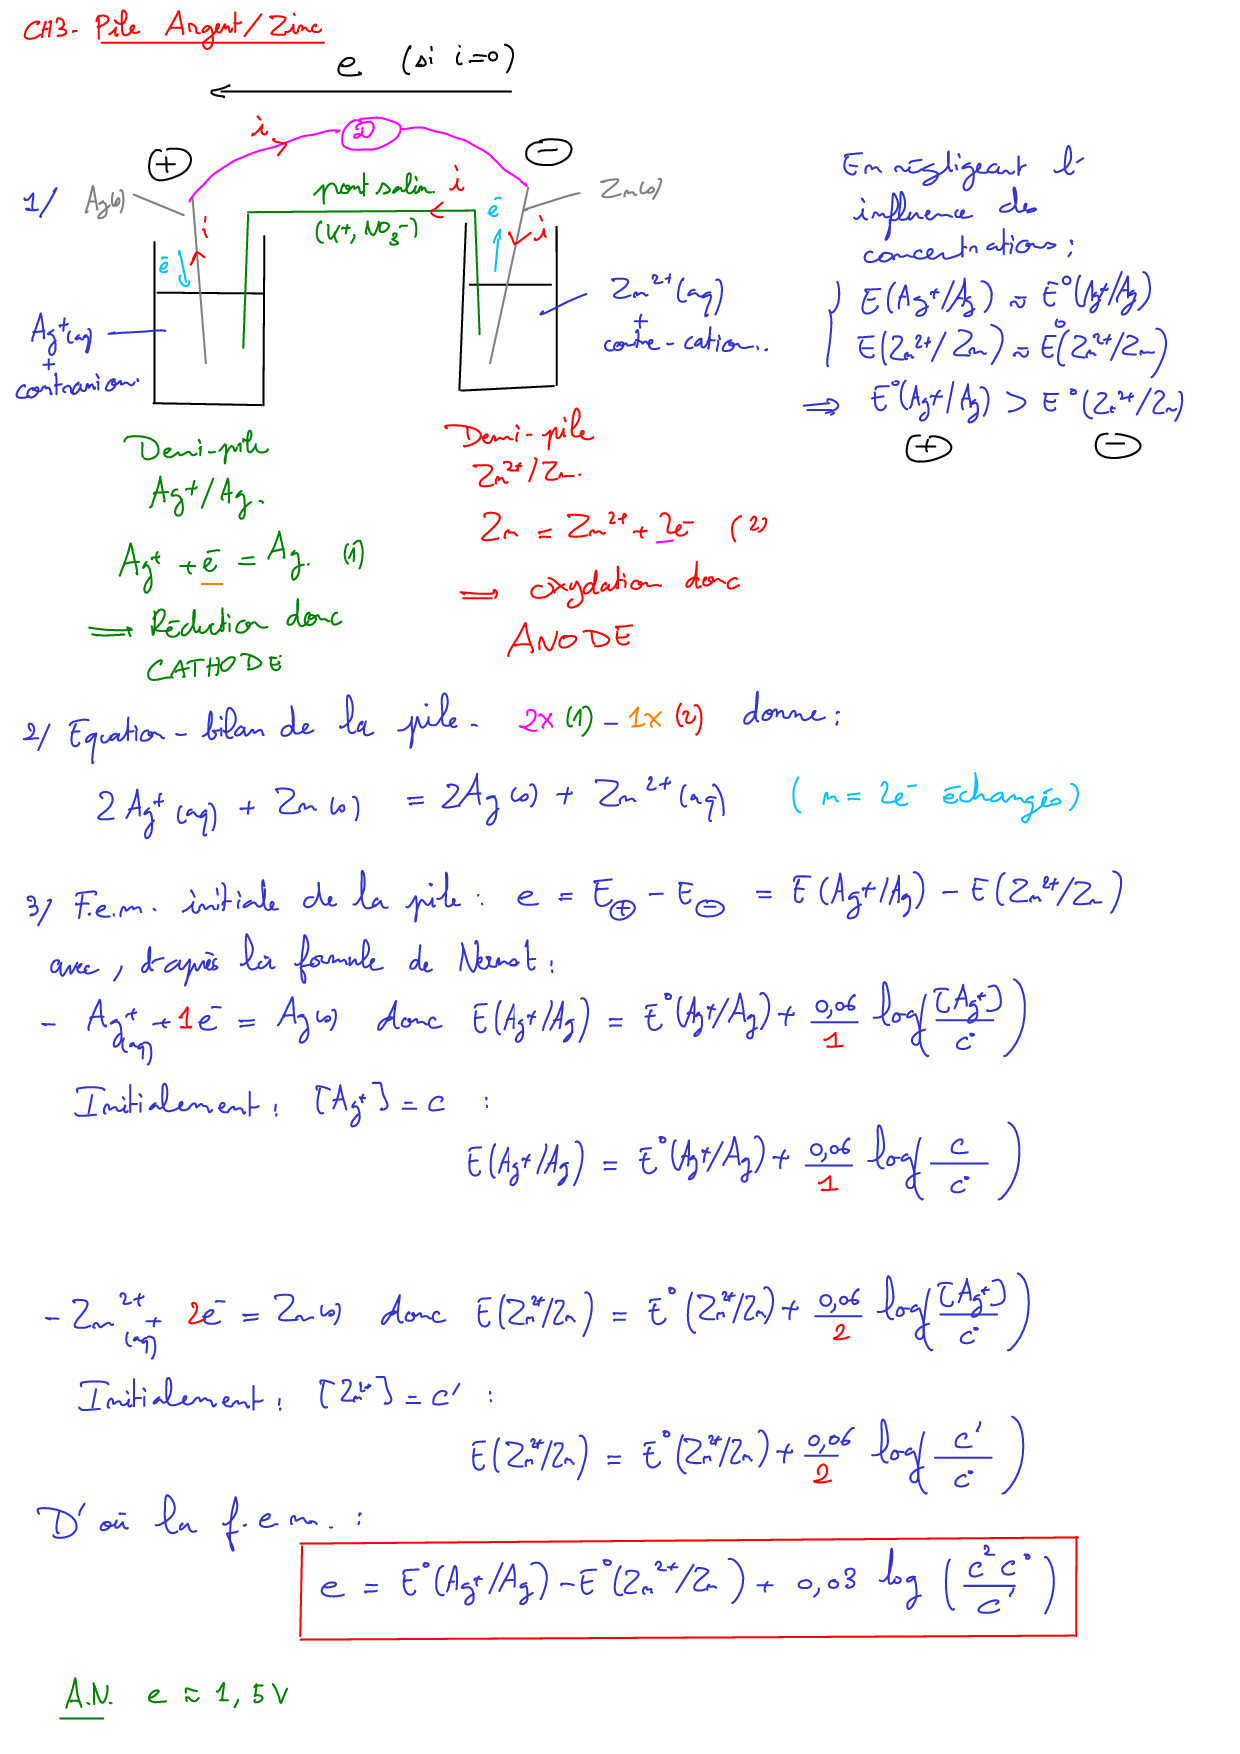 CH3- Pile Argent/Zinc
e (si i=0)
i
D
+
-
1/
Ag(s)
pont salin
i
(K+, NO3-)
Zn(s)
i
ē
ē
i
Ag+(aq)
+
contranion.
Zn2+(aq)
+
contre-cation..
En négligeant l'
influence des
concentrations;
E(Ag+/Ag) ≈ E°(Ag+/Ag)
E(Zn2+/Zn) ≈ E°(Zn2+/Zn)
⇒ E°(Ag+/Ag) > E°(Zn2+/Zn)
+ -
Demi-pile
Ag+/Ag.
Ag+ + ē = Ag. (1)
⇒ Réduction donc
CATHODE
Demi-pile
Zn2+/Zn.
Zn = Zn2+ + 2ē (2)
⇒ oxydation donc
ANODE
2/ Equation-bilan de la pile- 2x (1) - 1x (2) donne:
2Ag+(aq) + Zn(s) = 2Ag(s) + Zn2+(aq) (n = 2e- échangés)
3/ F.e.m. initiale de la pile: e = E+ - E- = E(Ag+/Ag) - E(Zn2+/Zn)
avec, d'après la formule de Nernst:
- Ag+(aq) + 1ē = Ag(s) donc E(Ag+/Ag) = E°(Ag+/Ag) + 0,06/1 log([Ag+]/c°)
Initialement: [Ag+] = c :
E(Ag+/Ag) = E°(Ag+/Ag) + 0,06/1 log(c/c°)
- Zn2+(aq) + 2ē = Zn(s) donc E(Zn2+/Zn) = E°(Zn2+/Zn) + 0,06/2 log([Ag+]/c°)
Initialement: [Zn2+] = c' :
E(Zn2+/Zn) = E°(Zn2+/Zn) + 0,06/2 log(c'/c°)
D'où la f.e.m. :
e = E°(Ag+/Ag) - E°(Zn2+/Zn) + 0,03 log (c²c°/c')
A.N. e ≈ 1,5V